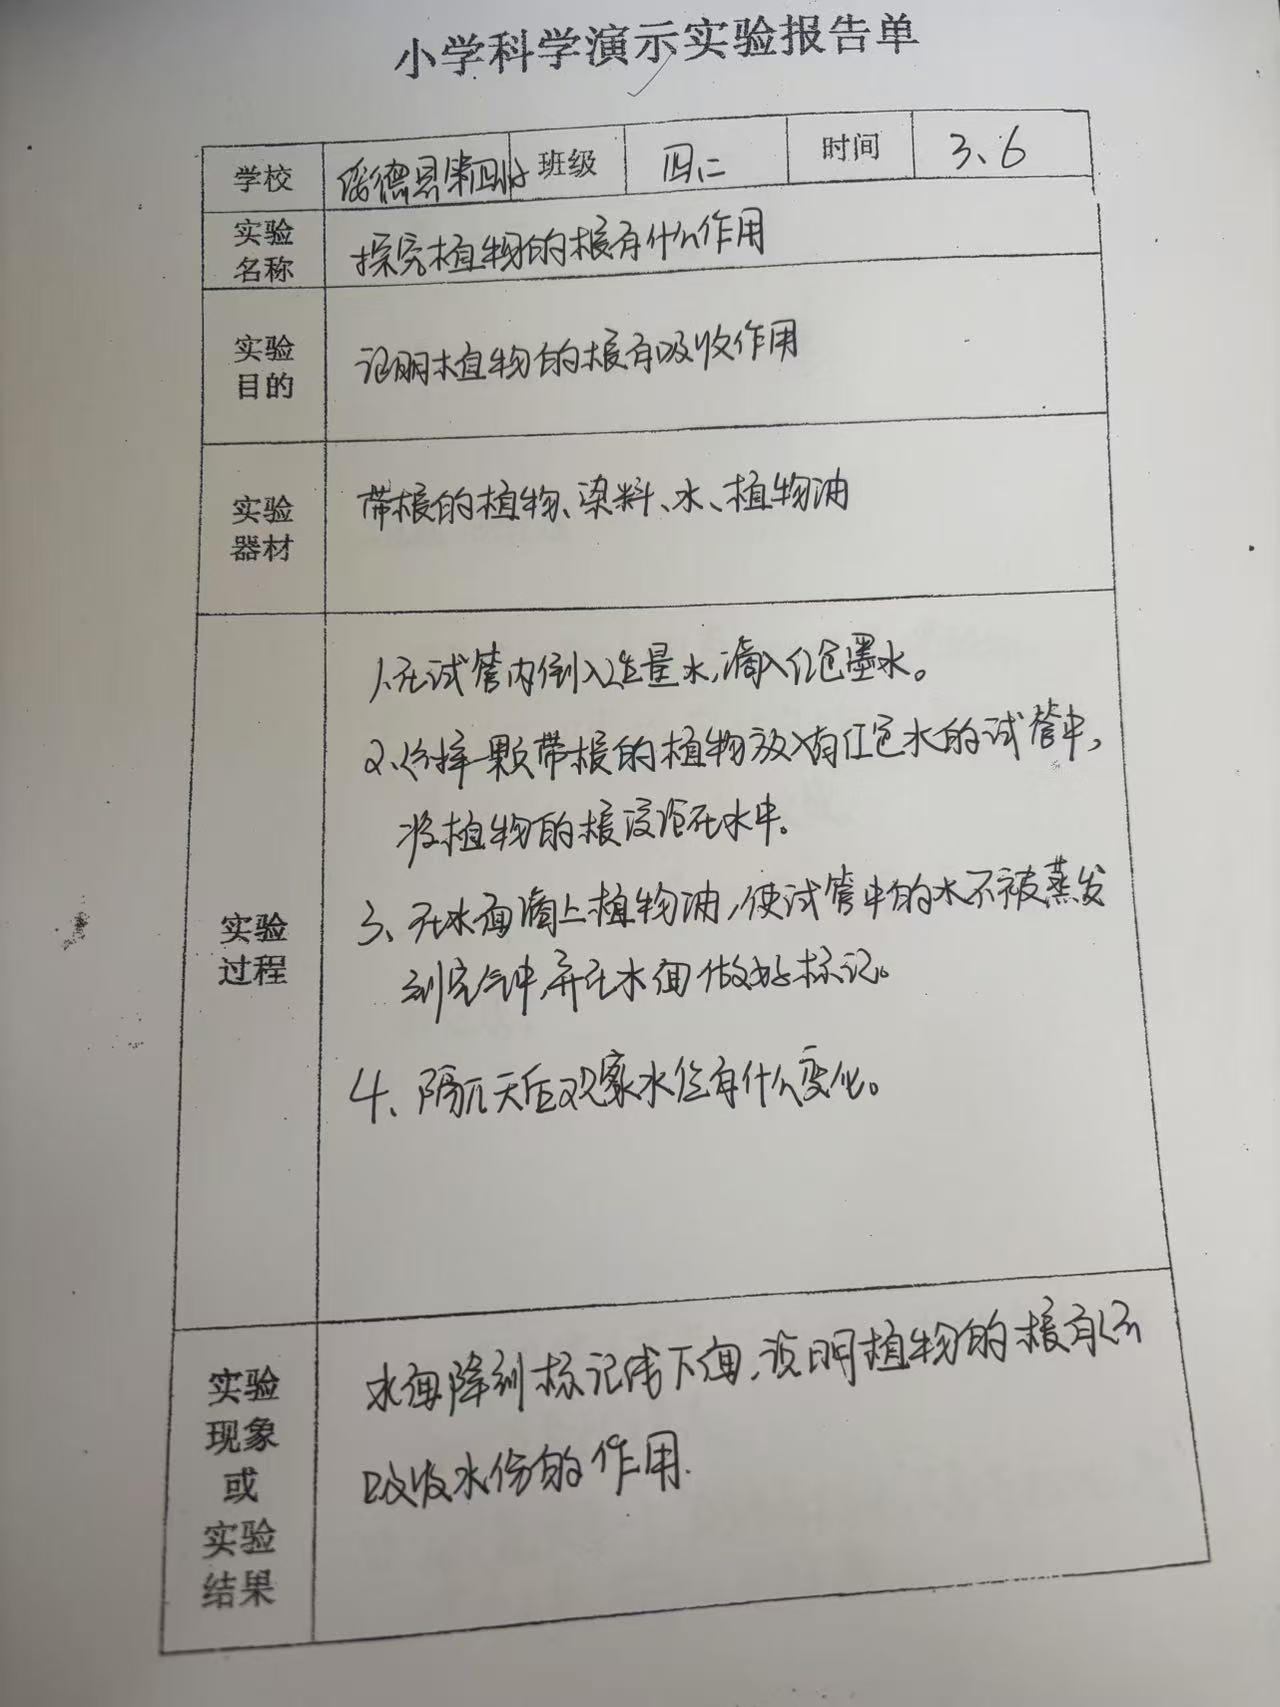 小学科学演示实验报告单
学校 德县第四小 班级 四.二 时间 3、6
实验名称 探究植物的根有什么作用
实验目的 证明植物的根有吸收作用
实验器材 带根的植物、染料、水、植物油
实验过程
1.在试管内倒入适量水,滴入红色墨水。
2、选择一颗带根的植物放入有红色水的试管中,
将植物的根浸泡在水中。
3、在水面滴上植物油,使试管中的水不被蒸发
到空气中,并在水面做好标记。
4、隔几天后观察水位有什么变化。
实验现象或实验结果
水面降到标记线下面,说明植物的根有
吸收水份的作用.